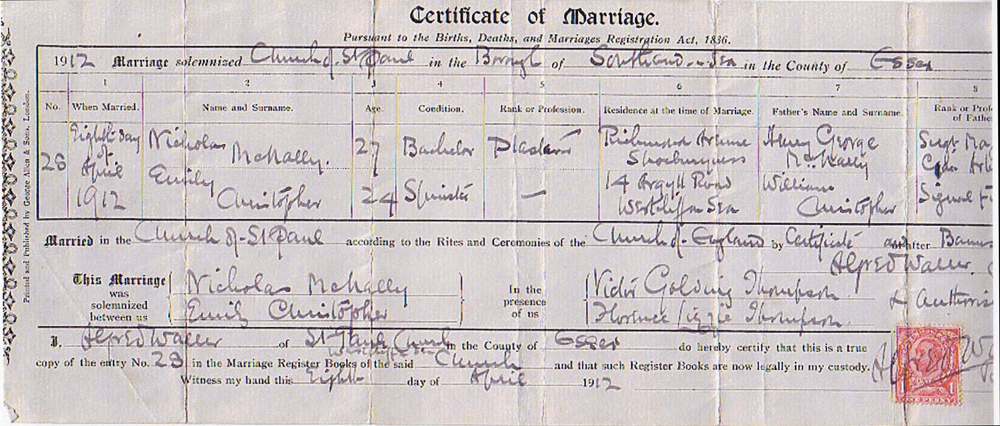 Certificate of Marriage.
Pursuant to the Births, Deaths, and Marriages Registration Act, 1836.
1912 Marriage solemnized Church of St Paul in the Borough of Southend-on-Sea in the County of Essex
1 2 3 4 5 6 7 8
No. When Married. Name and Surname. Age. Condition. Rank or Profession. Residence at the time of Marriage. Father's Name and Surname. Rank or Prof
of Fathe
28 Eighth Day of April 1912 Nicholas McNally. 27 Bachelor Plasterer Richmond Avenue Shoeburyness Henry George McNally Sergt Ma
Emily Christopher 24 Spinster — 14 Argyll Road Westcliff on Sea William Christopher Signal F
Married in the Church of St Paul according to the Rites and Ceremonies of the Church of England by Certificate or after Banns
Alfred Waller.
This Marriage was solemnized between us
Nicholas McNally
Emily Christopher
In the presence of us
Victor Golding Thompson.
Florence Lizzie Thompson.
I, Alfred Waller of St Pauls Church in the County of Essex do hereby certify that this is a true
copy of the entry No. 28 in the Marriage Register Books of the said Church and that such Register Books are now legally in my custody.
Witness my hand this Eighth day of April 1912
Printed and Published by George Allen & Sons, London.